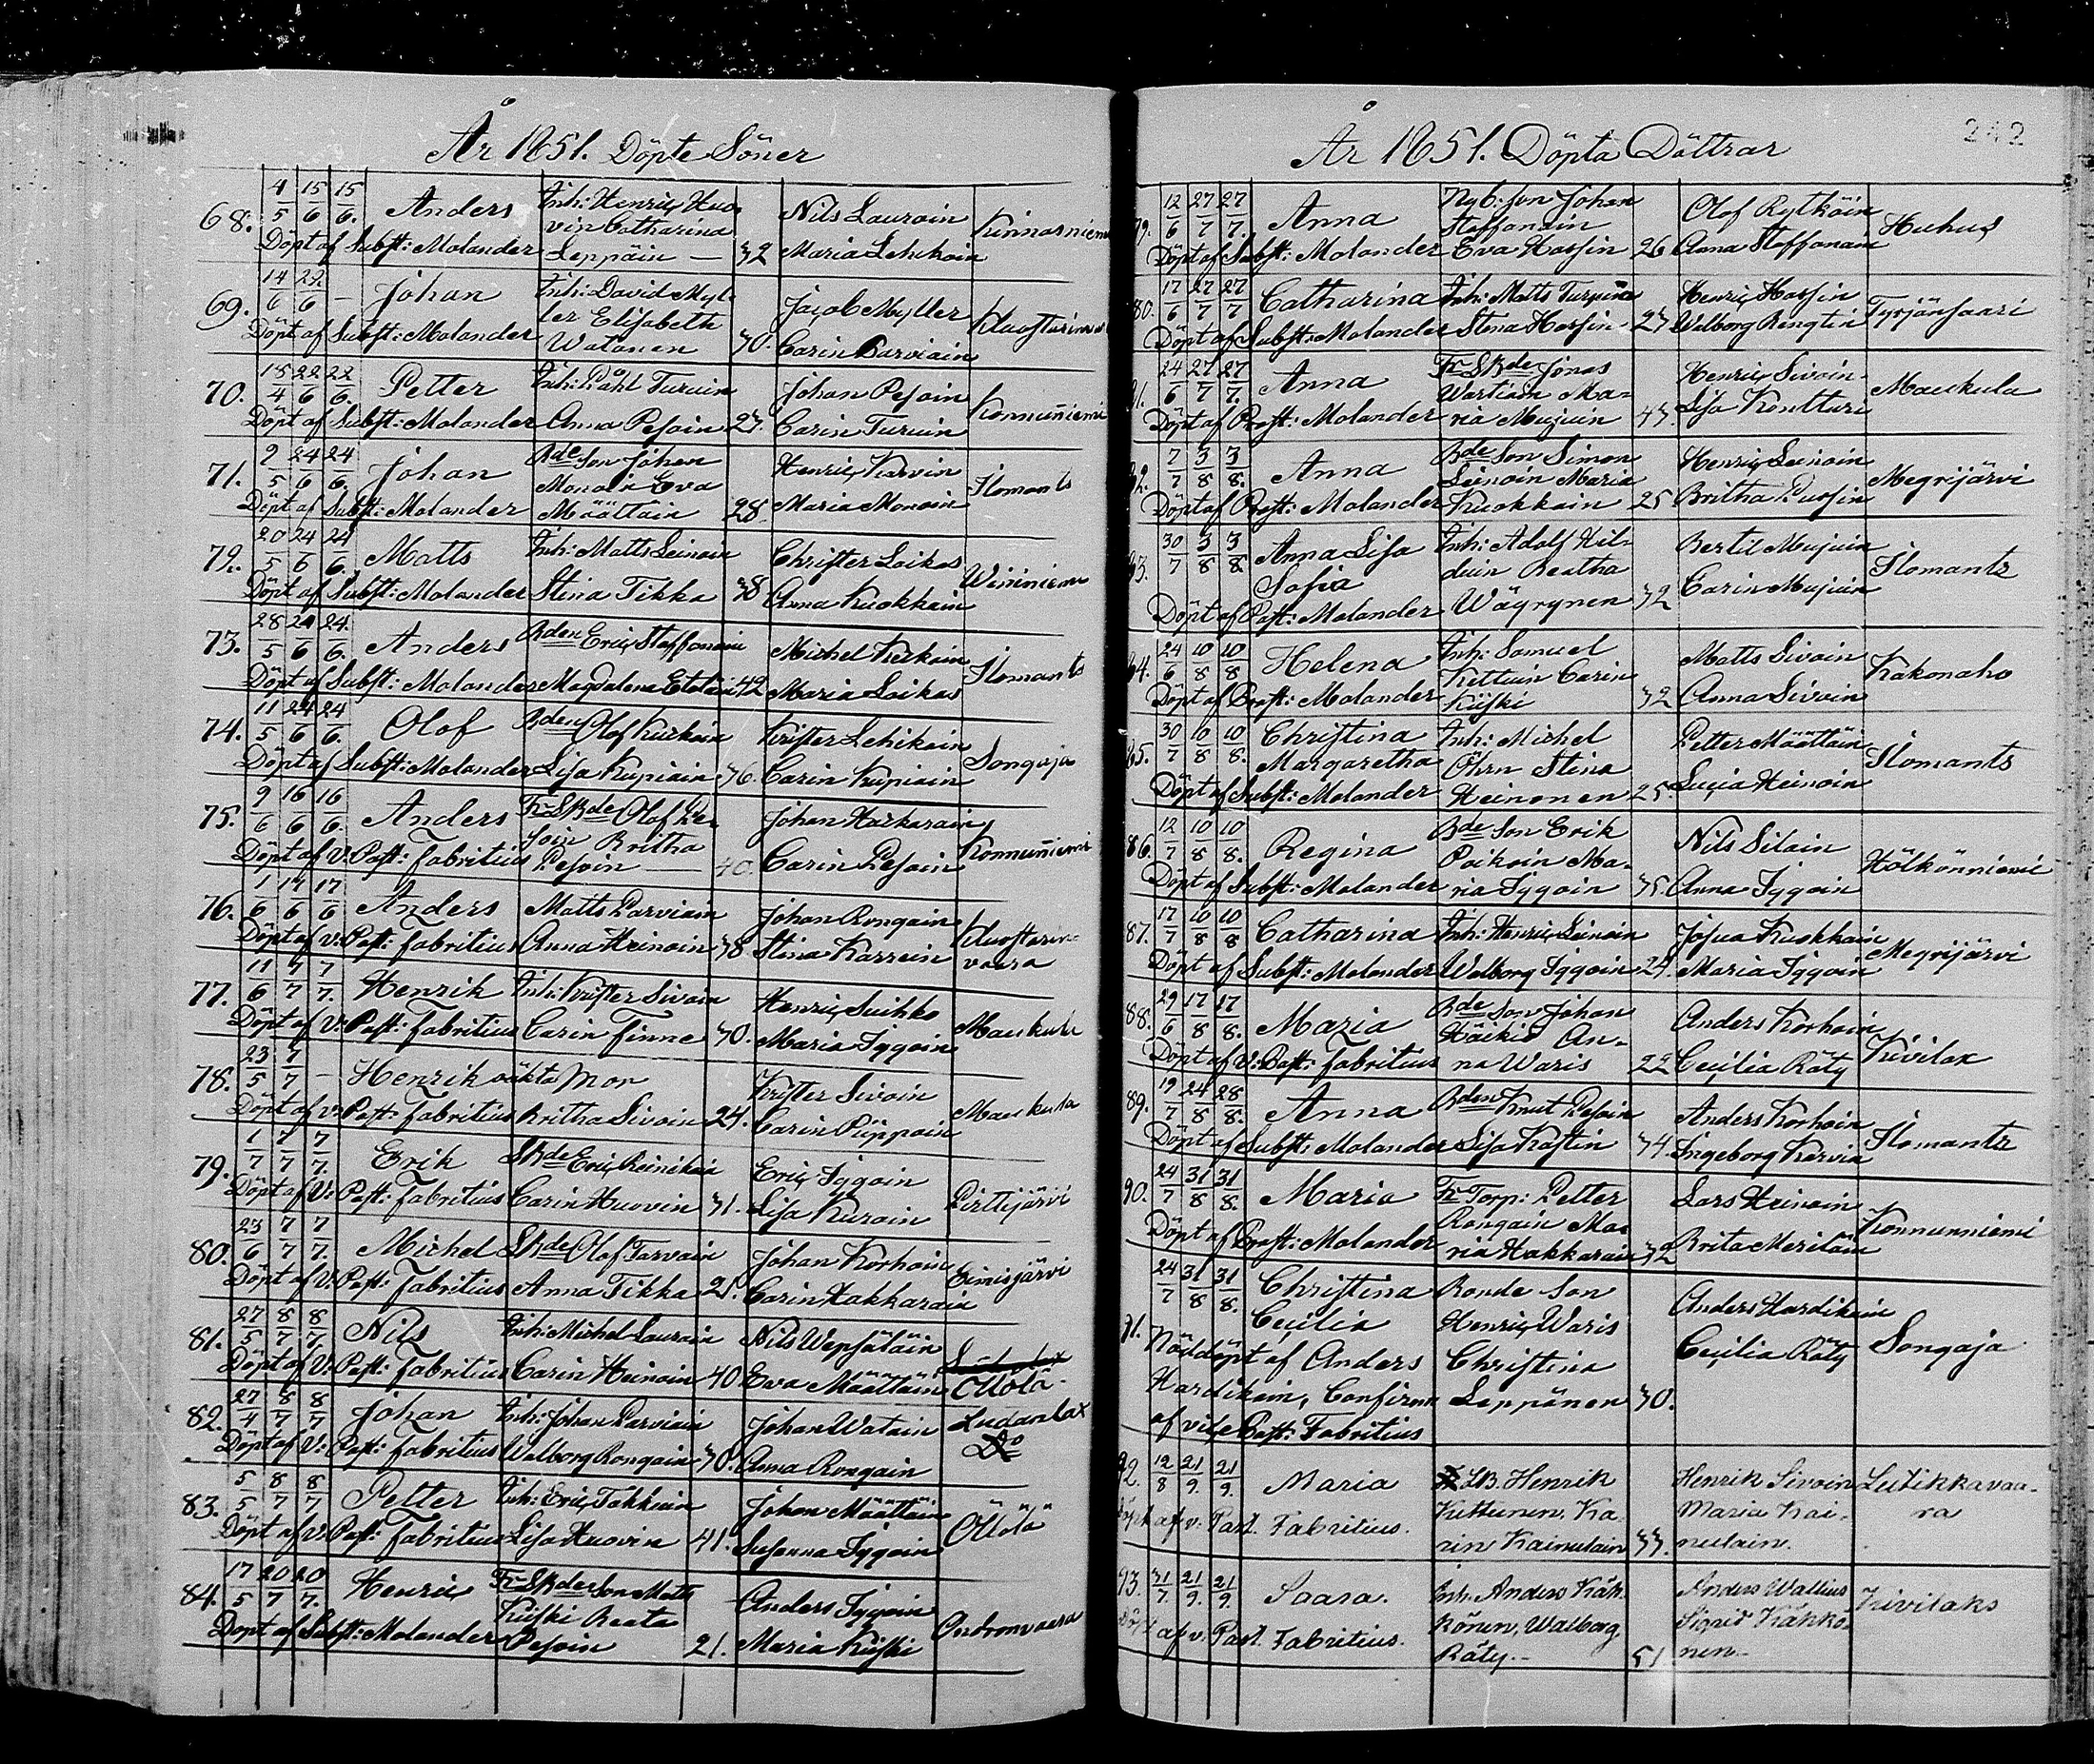 År 1851. Döpte Söner
68. 4/5 15/6 15/6. Anders Inh: Henric Huovin Catharina Leppäin — 32 Nils Laurain Maria Lehikoin Kinnasniemi
Döpt af Subst: Molander
69. 14/6 22/6 – Johan Inh: David Myller Elisabeth Watanen 30. Jacob Myller Carin Parviain
Döpt af Subst: Molander
70. 18/4 22/6 22/6. Petter Inh: Påhl Turuin Anna Pesoin 27. Johan Pesoin Carin Turuin Konnunniemi
Döpt af Subst: Molander
71. 9/5 24/6 24/6. Johan Bde Son Johan Monoin Eva Määttäin 28. Henric Karvin Maria Monoin Ilomants
Döpt af Subst: Molander
72. 20/5 24/6 24/6. Matts Inh: Matts Leinoin Stina Tikka 38 Christer Loikas Anna Kuokkain
Döpt af Subst: Molander
73. 28/5 24/6 24/6. Anders Bden Eric Staffanain Magdalena 42 Michel Maria Loikas Ilomants
Döpt af Subst: Molander
74. 11/5 24/6 24/6. Olof Bden Olof Lisa Kupiain 36. Krister Lehikoin Carin Kupiain Songaja
Döpt af Subst: Molander
75. 9/6 16/6 16/6. Anders Fr SBde Olof Pesoin Britha Pesoin — 40. Johan Harkarain Carin Pesoin Konnunniemi
Döpt af V: Past: Fabritius
76. 1/6 17/6 17/6 Anders Matts Parviain Anna Heinoin 38 Johan Rongain Stina Karrein
Döpt af V: Past: Fabritius
77. 11/6 7/7 7/7. Henrik Inh: Krister Sivoin Carin Finne 30. Henric Suihko Maria Iggoin Maukula
Döpt af V: Past: Fabritius
78. 23/5 7/7 – Henrik oäkta Mor Britha Sivoin 24. Krister Sivoin Carin Piippoin Maukula
Döpt af V: Past: Fabritius
79. 1/7 7/7 7/7. Erik SBde Eric Reinikain Carin Huovin 31. Eric Iggoin Lisa Kurain Pirttijärvi
Döpt af V: Past: Fabritius
80. 23/6 7/7 7/7. Michel SBde Olof Tarvain Anna Tikka 25. Johan Korhoin Carin Hakkarain Eimisjärvi
Döpt af V: Past: Fabritius
81. 27/5 8/7 8/7 Nils Inh: Michel Laurain Carin Heinoin 40 Nils Wepsäläin Eva Määttäin
Döpt af V: Past: Fabritius
82. 27/4 8/7 8/7 Johan Inh: Johan Parviain Walborg Rongain 30. Johan Watain Anna Rongain
Döpt af V: Past: Fabritius
83. 5/5 8/7 8/7 Petter Inh: Eric Lisa Huovin 41. Johan Määttäin Susanna Iggoin
Döpt af V: Past: Fabritius
84. 17/5 20/7 20/7. Henric Fr SBde Son Matts Kiiski Beata Pesoin 21. Anders Iggoin Maria Kiiski
Döpt af Subst: Molander
242
År 1851. Döpta Döttrar
79. 12/6 27/7 27/7. Anna Nyb: son Johan Staffanain Eva Hassin 26 Olof Rytköin Anna Staffanain Huhus
Döpt af Subst: Molander
80. 17/6 27/7 27/7 Catharina Inh: Matts Turpein Stena Hassin 27 Henric Hassin Walborg Bengtin Tyrjänsaari
Döpt af Subst: Molander
81. 24/6 27/7 27/7. Anna Fr SBde Jonas Wartiain Maria Mujuin 43. Henric Sivoin Lisa Kontturi Maukula
Döpt af Past: Molander
82. 7/7 3/8 3/8. Anna Bde Son Simon Leinoin Maria Kuokkain 25 Henric Leinoin Britha Megrijärvi
Döpt af Past: Molander
83. 30/7 3/8 3/8. Anna Lisa Sofia Inh: Adolf Hilduin Beatha Wäyrynen 32 Bertil Mujuin Carin Mujuin Ilomants
Döpt af Past: Molander
84. 24/6 10/8 10/8 Helena Inh: Samuel Kettuin Carin Kiiski 32 Matts Sivoin Anna Sivoin Kakonaho
Döpt af Past: Molander
85. 30/7 10/8 10/8. Christina Margaretha Inh: Michel Öhrn Stina Heinonen 25. Petter Määttäin Lucia Heinoin Ilomants
Döpt af Subst: Molander
86. 12/7 10/8 10/8. Regina Bde Son Erik Poikoin Maria Iggoin 35. Nils Silain Anna Iggoin Hölkönniemi
Döpt af Subst: Molander
87. 17/7 10/8 10/8 Catharina Inh: Henric Leinoin Walborg Iggoin Josua Kuokkain Maria Iggoin Megrijärvi
Döpt af Subst: Molander
88. 29/6 17/8 17/8. Maria Bde Son Johan Häikiö Anna Waris 22 Anders Korhoin Cecilia Räty Kivilax
Döpt af V: Past: Fabritius
89. 19/7 24/8 28/8. Anna Bden Knut Pesoin Lisa Kostin 34. Anders Korhoin Ingeborg Karvin Ilomants
Döpt af Subst: Molander
90. 24/7 31/8 31/8. Maria Fr Torp: Petter Rongain Maria Hakkarain 32 Lars Heinoin Brita Meriläin Konnunniemi
Döpt af Past: Molander
91. 24/7 31/8 31/8. Christina Cecilia Bonde Son Henric Waris Christina Leppänen 30. Anders Hardikain Cecilia Räty Songaja
Nöddöpt af Anders
Hardikain, Confirm
af vice Past: Fabritius
92. 12/8 21/9. 21/9. Maria LB. Henrik Kuttunen, Karin Kainulain 33. Henrik Sivoin Maria Kainulain. Lutikkavaara
Döpt af v. Past. Fabritius.
93. 31/7. 21/9. 21/9. Saara. Inh. Anders Käkkönen, Walborg Räty.– 51 Anders Wallius Sigrid Käkkönen. Kivilaks
Döpt af v. Past. Fabritius.